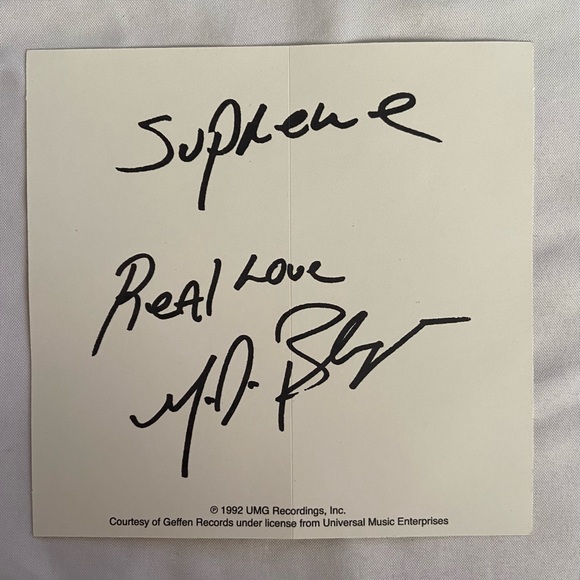 Supreme
Real Love
M.J. Blige
℗ 1992 UMG Recordings, Inc.
Courtesy of Geffen Records under license from Universal Music Enterprises